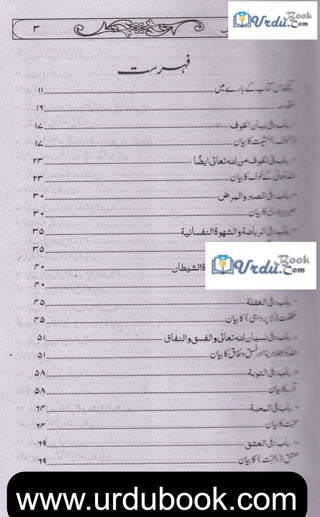 ۳
Urdu Book .com
فہرست
کچھ اس کتاب کے بارے میں ۱۱
مقدمہ ۱۶
باب: فی بیان الخوف ۱۷
(خوف) خشیت کا بیان ۱۷
باب: فی الخوف من اللہ تعالیٰ ایضاً ۲۳
اللہ تعالیٰ کے خوف کا بیان ۲۳
باب: فی الصبر والمرض ۳۰
صبر و بیماری کا بیان ۳۰
باب: فی الریاضة والشهوة النفسانیة ۳۵
۳۵
الشیطان ۴۰
Urdu Book .com
۴۰
باب: فی الغفلة ۴۵
غفلت (لاپرواہی) کا بیان ۴۵
باب: فی نسیان اللہ تعالیٰ والفسق والنفاق ۵۱
اللہ کو بھلا دینا اور فسق و نفاق کا بیان ۵۱
باب: فی التوبة ۵۸
توبہ کا بیان ۵۸
باب: فی المحبة ۶۴
محبت کا بیان ۶۴
باب: فی العشق ۶۹
عشق (محبت) کا بیان ۶۹
www.urdubook.com